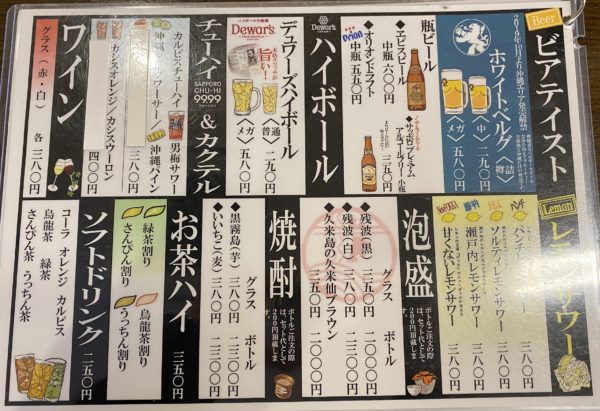 Beer
ビアテイスト
2019年10月より沖縄エリア発売解禁
ホワイトベルグ
〈中〉 二九〇円 樽詰
〈メガ〉 五八〇円
瓶ビール
◆エビスビール
中瓶 六〇〇円
Orion
◆オリオンドラフト
中瓶 五五〇円
◆サッポロプレミアム
アルコールフリー 小瓶
三五〇円
ハイボール
Dewar's
デュワーズハイボール
〈普通〉 二九〇円
〈メガ〉 五八〇円
ハイボールの起源
Dewar's
旨い!
チューハイ&カクテル
SAPPORO
CHU-HI
99.99
カルピスチューハイ 男梅サワー
沖縄 沖縄パイン
三八〇円
カシスオレンジ カシスウーロン
四〇〇円
ワイン
グラス(赤・白) 各 三八〇円
Lemon
サワー
三八〇円
ソルティレモンサワー 三八〇円
瀬戸内レモンサワー 三八〇円
甘くないレモンサワー 三八〇円
泡盛
ボトルご注文の際は、セット代として200円頂戴します。
グラス ボトル
◆残波(黒) 三五〇円 二〇〇〇円
◆残波(白) 三五〇円 二〇〇〇円
◆久米島の久米仙ブラウン 三五〇円 二〇〇〇円
焼酎
ボトルご注文の際は、セット代として200円頂戴します。
グラス ボトル
◆黒霧島(芋) 三八〇円 二三〇〇円
◆いいちこ(麦) 三八〇円 二三〇〇円
お茶ハイ
三五〇円
緑茶割り 烏龍茶割り
さんぴん割り うっちん割り
ソフトドリンク 二五〇円
コーラ オレンジ カルピス
烏龍茶 緑茶
さんぴん茶 うっちん茶